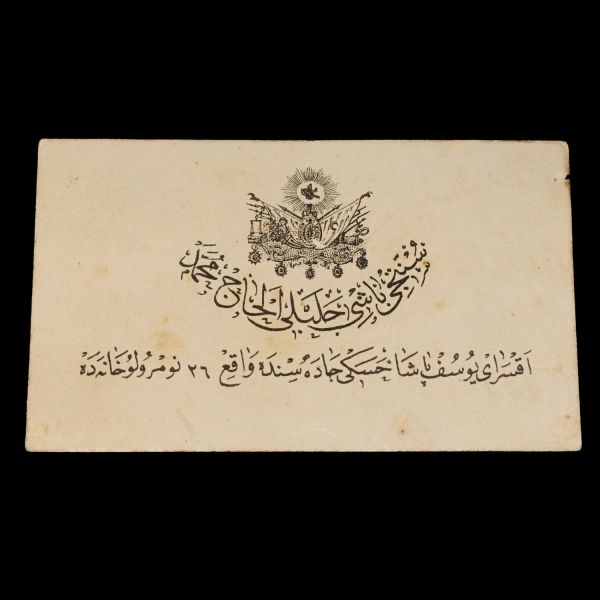 سنتجی باشی خلیلی الحاج محمد
آقسرای یوسف پاشا خسکی جاده سنده واقع ٢٦ نومرولو خانه ده